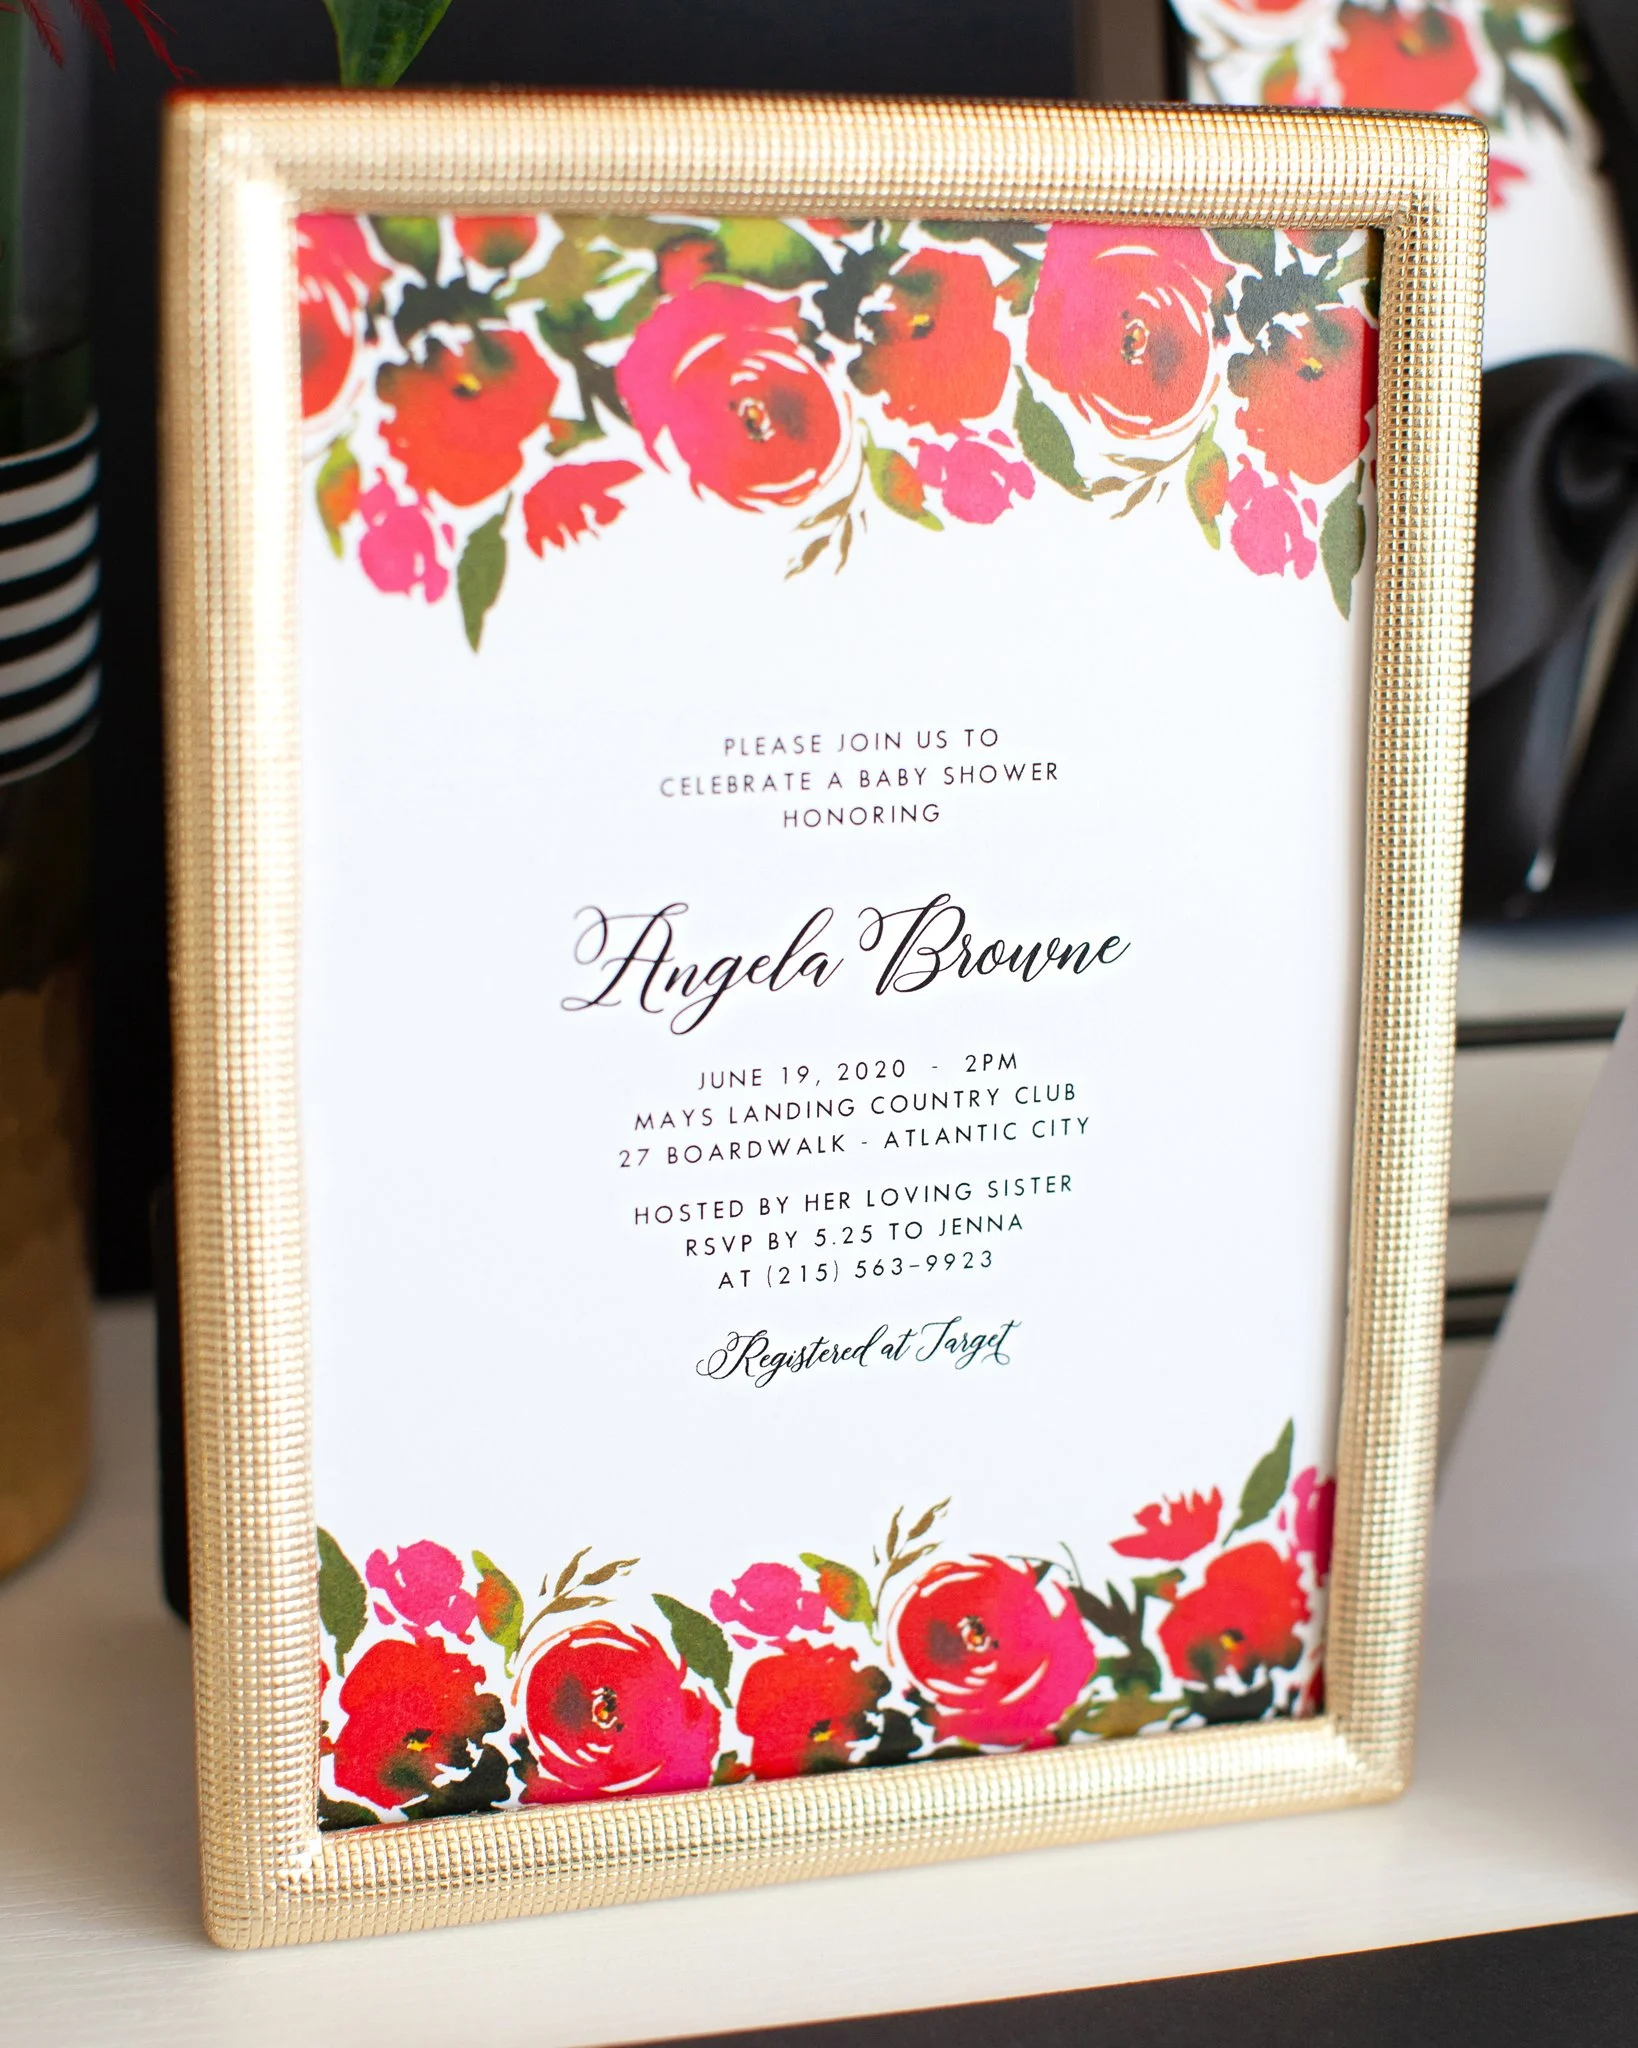 PLEASE JOIN US TO
CELEBRATE A BABY SHOWER
HONORING
Angela Browne
JUNE 19, 2020 - 2PM
MAYS LANDING COUNTRY CLUB
27 BOARDWALK - ATLANTIC CITY
HOSTED BY HER LOVING SISTER
RSVP BY 5.25 TO JENNA
AT (215) 563-9923
Registered at Target